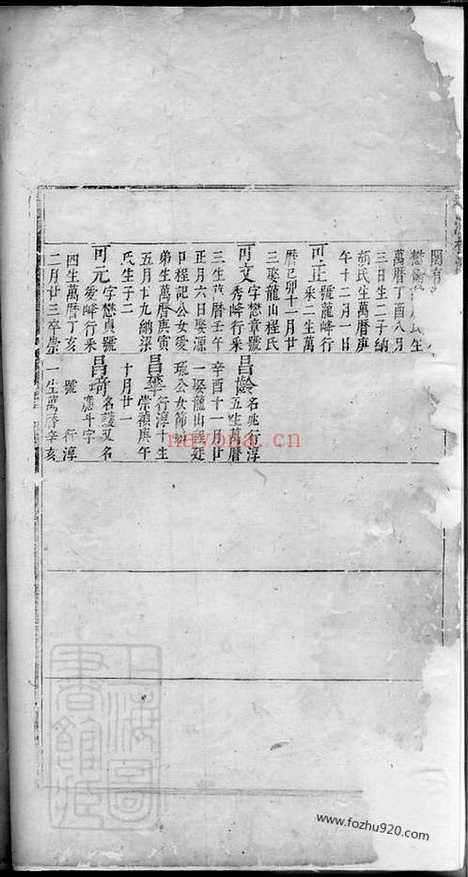 閣有
懋
氏生
萬曆丁酉八月
三日生二子納
胡氏生萬曆庚
午十二月一日
可正
號龍峰行
釆二生萬
曆己卯十一月廿
三娶龍山程氏
可文
字懋章號
秀峰行釆
三生萬曆壬午
正月六日娶源
口程記公女愛
弟生萬曆庚寅
五月十九納梁
氏生子二
可元
字懋貞號
愛峰行釆
四生萬曆丁亥
二月廿三卒崇
昌齡
名兆行淳
五生萬曆
辛酉十一日廿
一娶龍山
公女
昌華
行淳十生
崇禎庚午
十月廿一
昌琦
名護又名
應斗字
號 行淳
一生萬曆辛亥
nayona.cn
上海圖書館藏
www.fozhu920.com